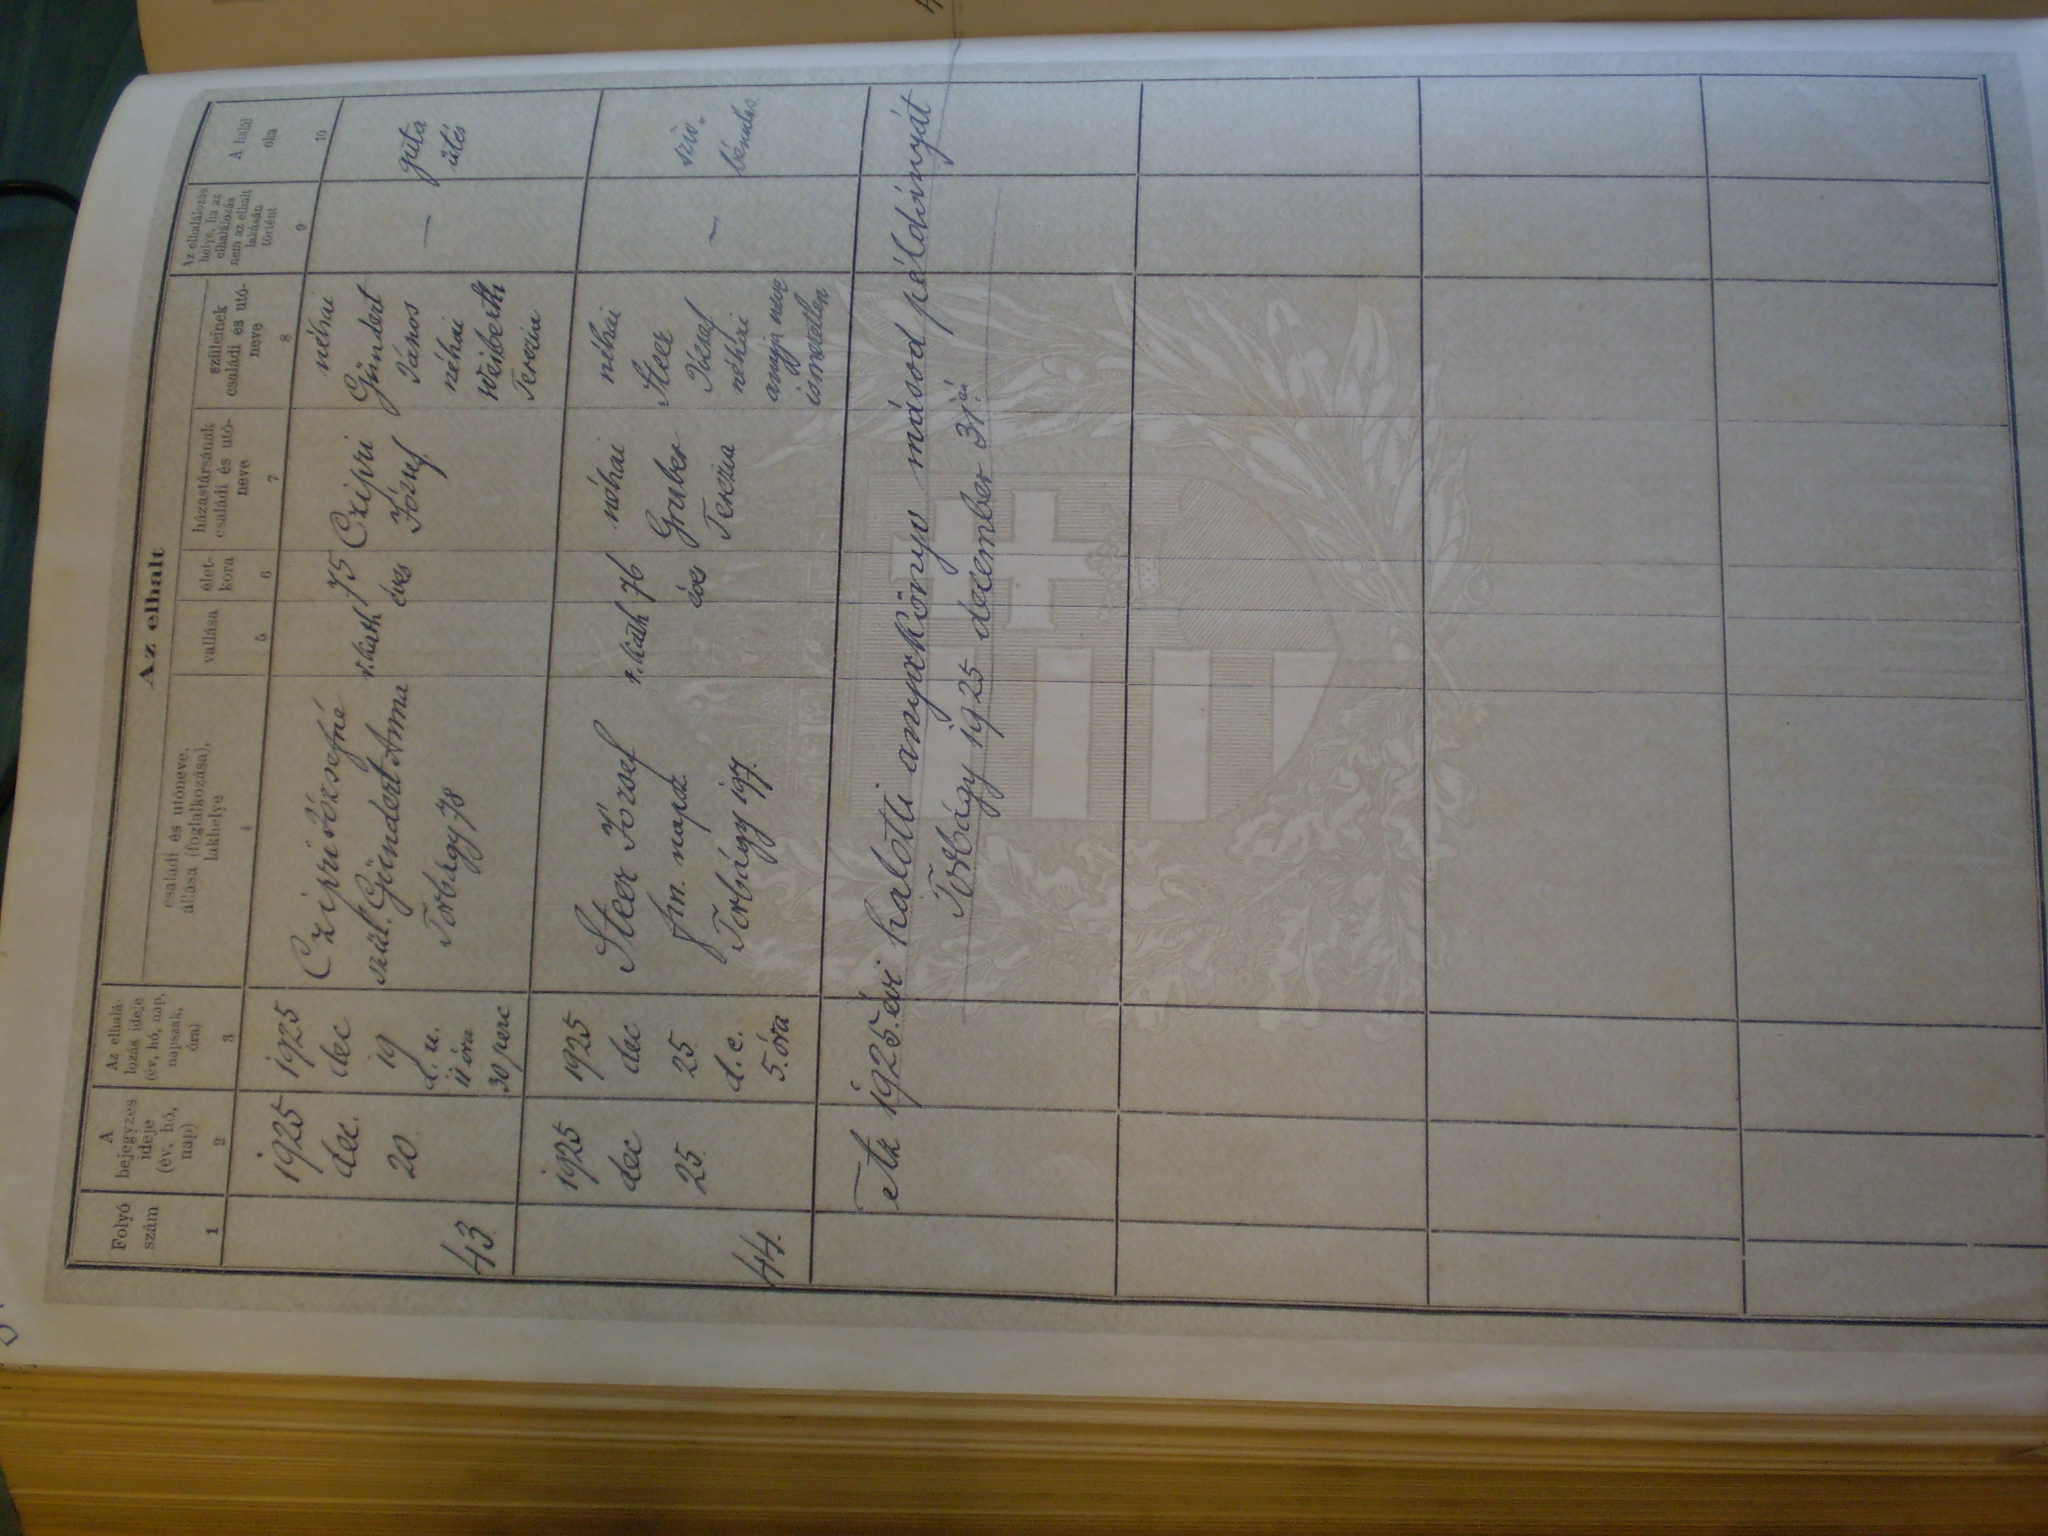 Az elhalt
Folyó
szám
A
bejegyzés
ideje
(év, hó,
nap)
Az elhalá-
lozás ideje
(év, hó, nap,
napszak,
óra)
családi és utóneve,
állása (foglalkozása),
lakhelye
vallása
élet-
kora
házastársának
családi és utó-
neve
szüleinek
családi és utó-
neve
Az elhalálozás
helye, ha az
elhalálozás
nem az elhalt
lakásán
történt
A halál
oka
1
2
3
4
5
6
7
8
9
10
43.
1925
dec.
20
1925
dec
19
d. u.
11 óra
30 perc
Czipri Józsefné
szül. Gündert Anna
Torbágy 78
r. kath
75
éves
Czipri
József
néhai
Gündert
János
néhai
Weiberth
Terezia
—
guta
ütés
44.
1925
dec
25
1925
dec
25
d. e.
5. óra
Steer József
fm. napsz.
Torbágy 197.
r. kath
76
éves
néhai
Gruber
Terezia
néhai
Steer
József
néhai
anyja neve
ismeretlen
—
szív-
bénulás
1925. évi halotti anyakönyv másod példányát
Torbágy 1925 december 31.én